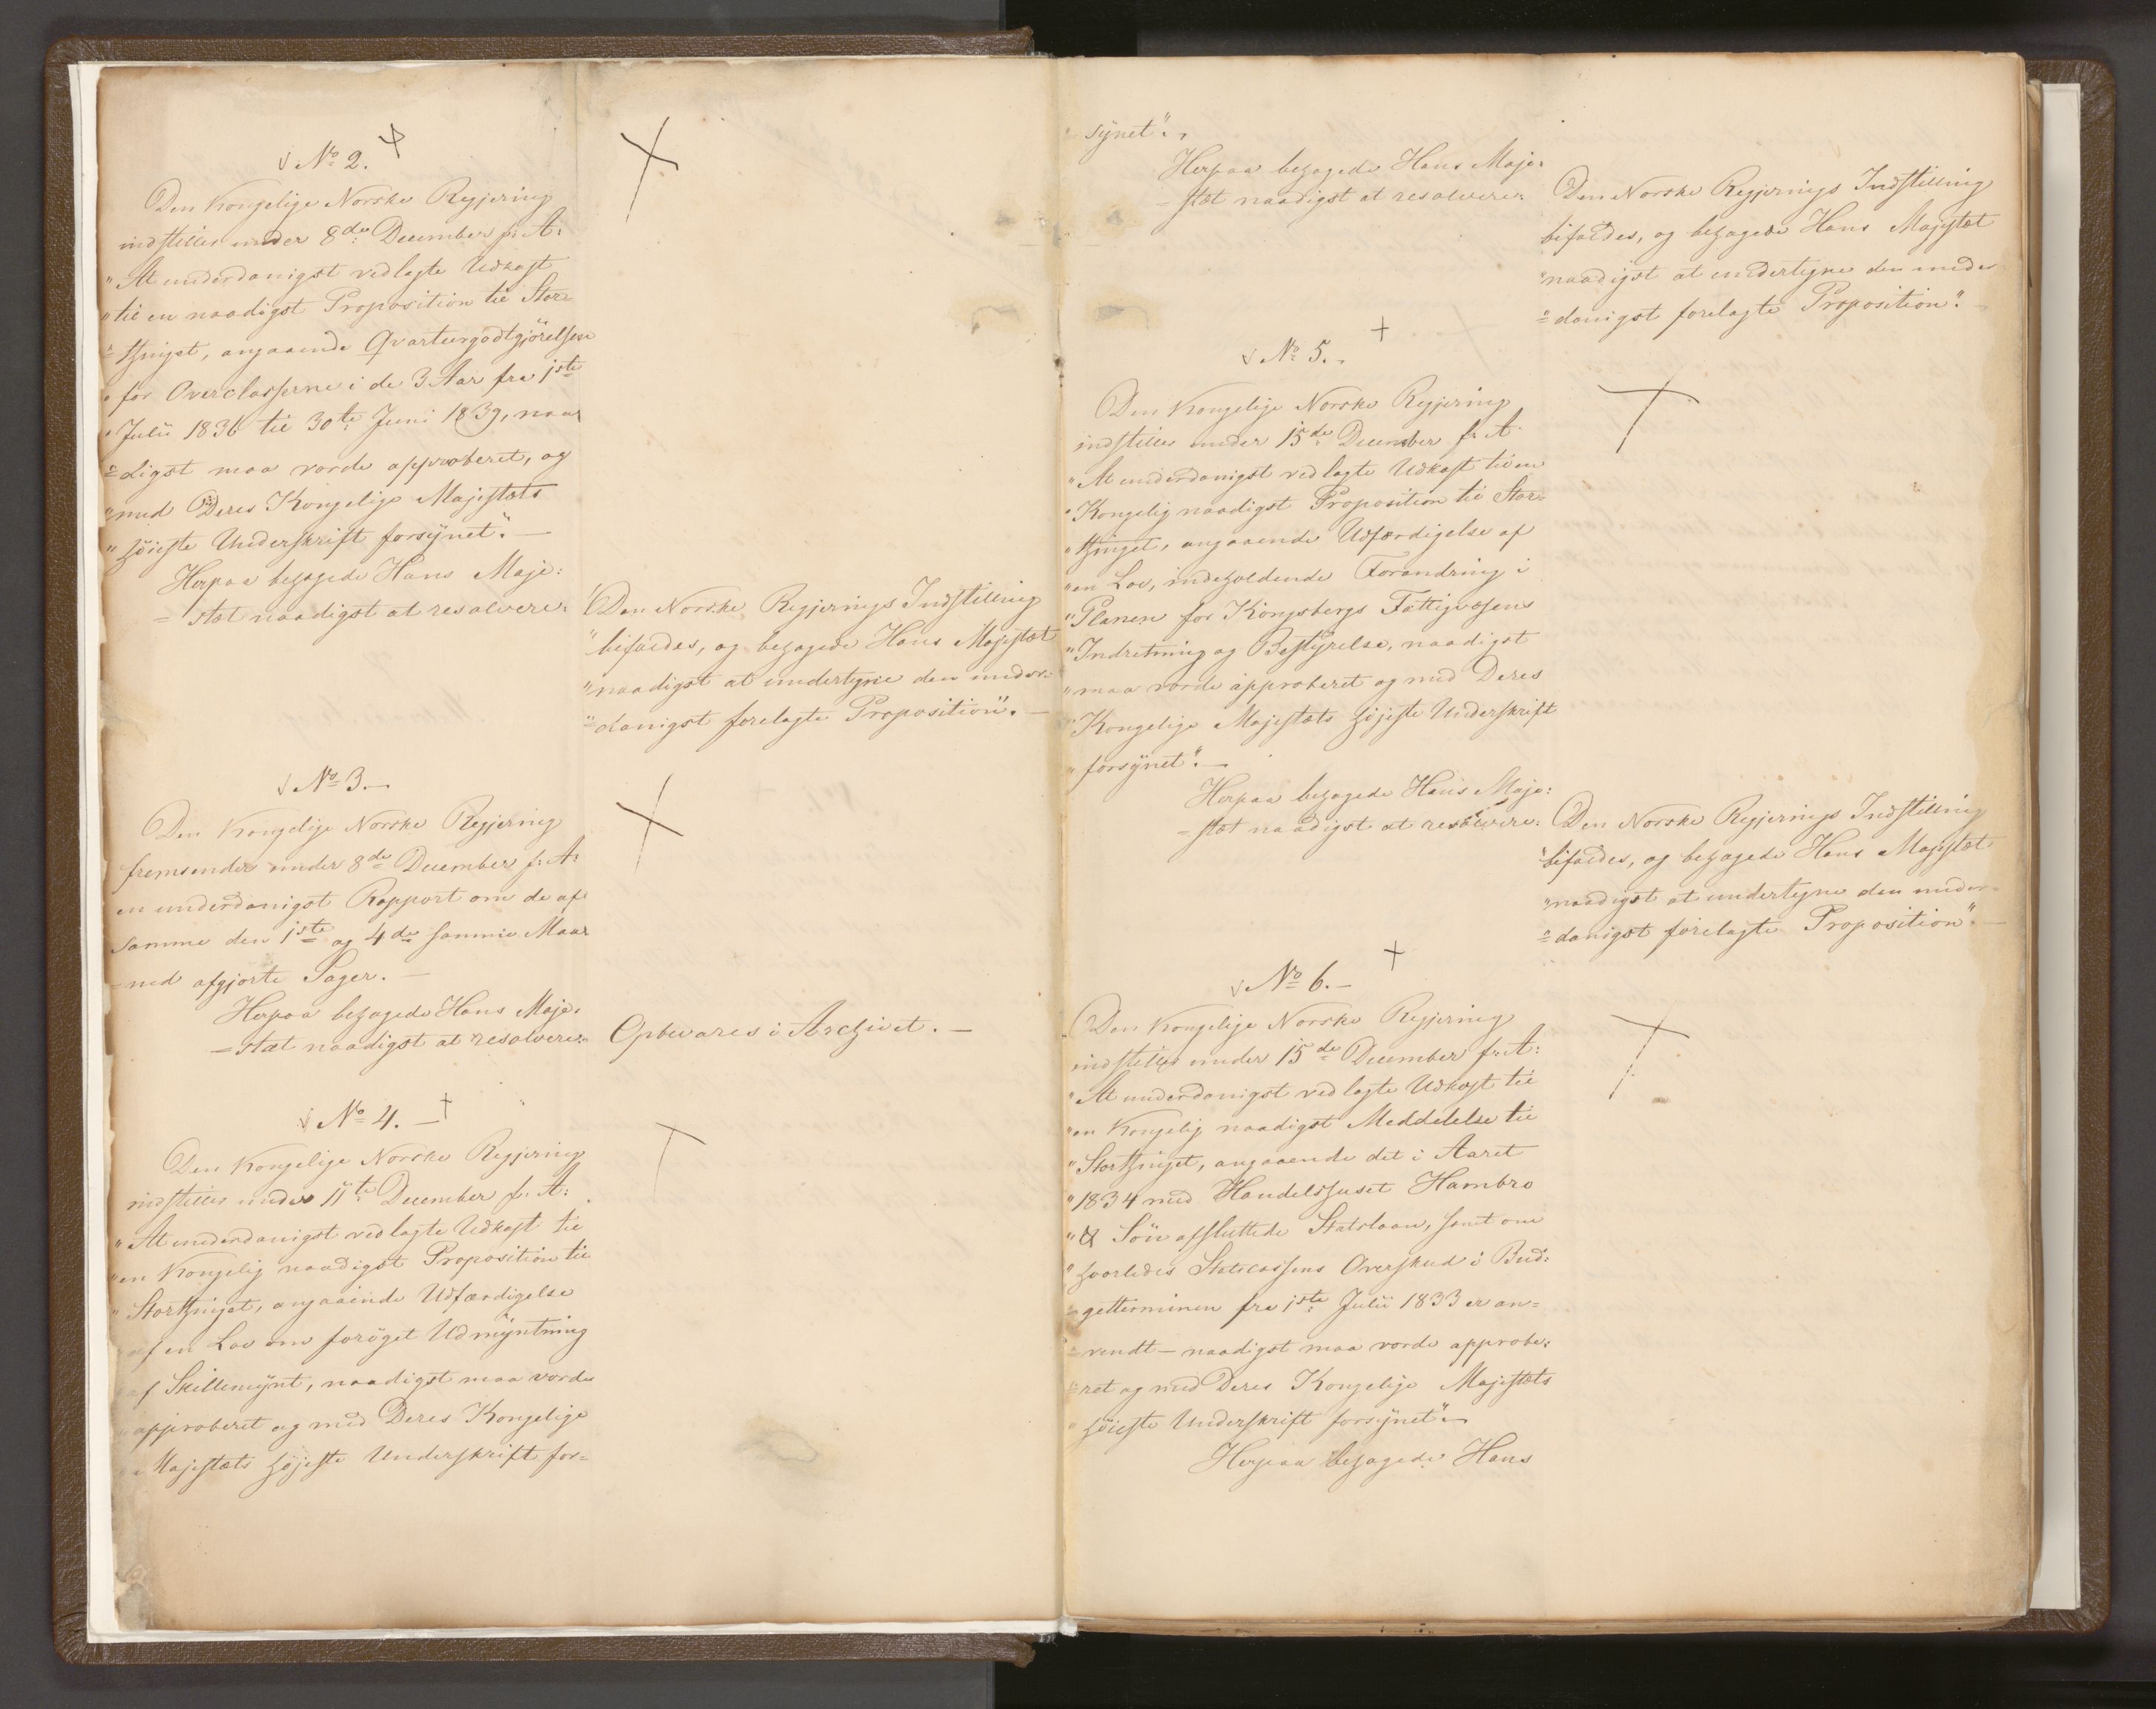 No 2.
Den Kongelige Norske Regjering
indstiller under 8de December f: A:
"At underdanigst vedlagte Udkast
"til en naadigst Proposition til Stor=
"=thinget, angaaende Qvarteergodtgjörelsen
"for Overclasserne i de 3 Aar fra 1ste
"Julii 1836 til 30te Juni 1839, naa=
"=digst maa vorde approberet, og
"med Deres Kongelige Majestæts
"höieste Underskrift forsynet". —
Herpaa behagede Hans Maje=
=stæt naadigst at resolvere:
"Den Norske Regjerings Indstilling
"bifaldes, og behagede Hans Majestæt
"naadigst at undertegne den under=
"=danigst forelagte Proposition". —
No 3. —
Den Kongelige Norske Regjering
fremsender under 8de December f: A:
en underdanigst Rapport om de af
samme den 1ste og 4de samme Maa=
=ned afgjorte Sager. —
Herpaa behagede Hans Maje=
=stæt naadigst at resolvere:
Opbevares i Archivet. —
No 4. —
Den Kongelige Norske Regjering
indstiller under 11te December f: A:
"At underdanigst vedlagte Udkast til
"en Kongelig naadigst Proposition til
"Storthinget, angaaende Udfærdigelse
"af en Lov om foröget Udmyntning
"af Skillemynt, naadigst maa vorde
"approberet og med Deres Kongelige
"Majestæts höjeste Underskrift for=
"synet".
Herpaa behagede Hans Maje=
=stæt naadigst at resolvere:
"Den Norske Regjerings Indstilling
bifaldes, og behagede Hans Majestæt
"naadigst at undertegne den under=
"=danigst forelagte Proposition". —
No 5.
Den Kongelige Norske Regjering
indstiller under 15de December f: A:
"At underdanigst vedlagte Udkast til en
"Kongelig naadigst Proposition til Stor=
"thinget, angaaende Udfærdigelse af
"en Lov, indeholdende Forandring i
"Planen for Kongsbergs Fattigvæsens
"Indretning og Bestyrelse, naadigst
"maa vorde approberet og med Deres
"Kongelige Majestæts höjeste Underskrift
"forsynet". —
Herpaa behagede Hans Maje=
=stæt naadigst at resolvere:
"Den Norske Regjerings Indstilling
"bifaldes, og behagede Hans Majestæt
"naadigst at undertegne den under=
"=danigst forelagte Proposition". —
No 6. —
Den Kongelige Norske Regjering
indstiller under 15de December f: A:
"At underdanigst vedlagte Udkast til
"en Kongelig naadigst Meddelelse til
"Storthinget, angaaende det i Aaret
"1834 med Handelshuset Hambro
"& Sön afsluttede Statslaan, samt om
"hvorledes Statscassens Overskud i Bud=
"=getterminen fra 1ste Julii 1833 er an=
"=vendt — naadigst maa vorde approbe=
"=ret og med Deres Kongelige Majestæts
"höieste Underskrift forsynet". —
Herpaa behagede Hans